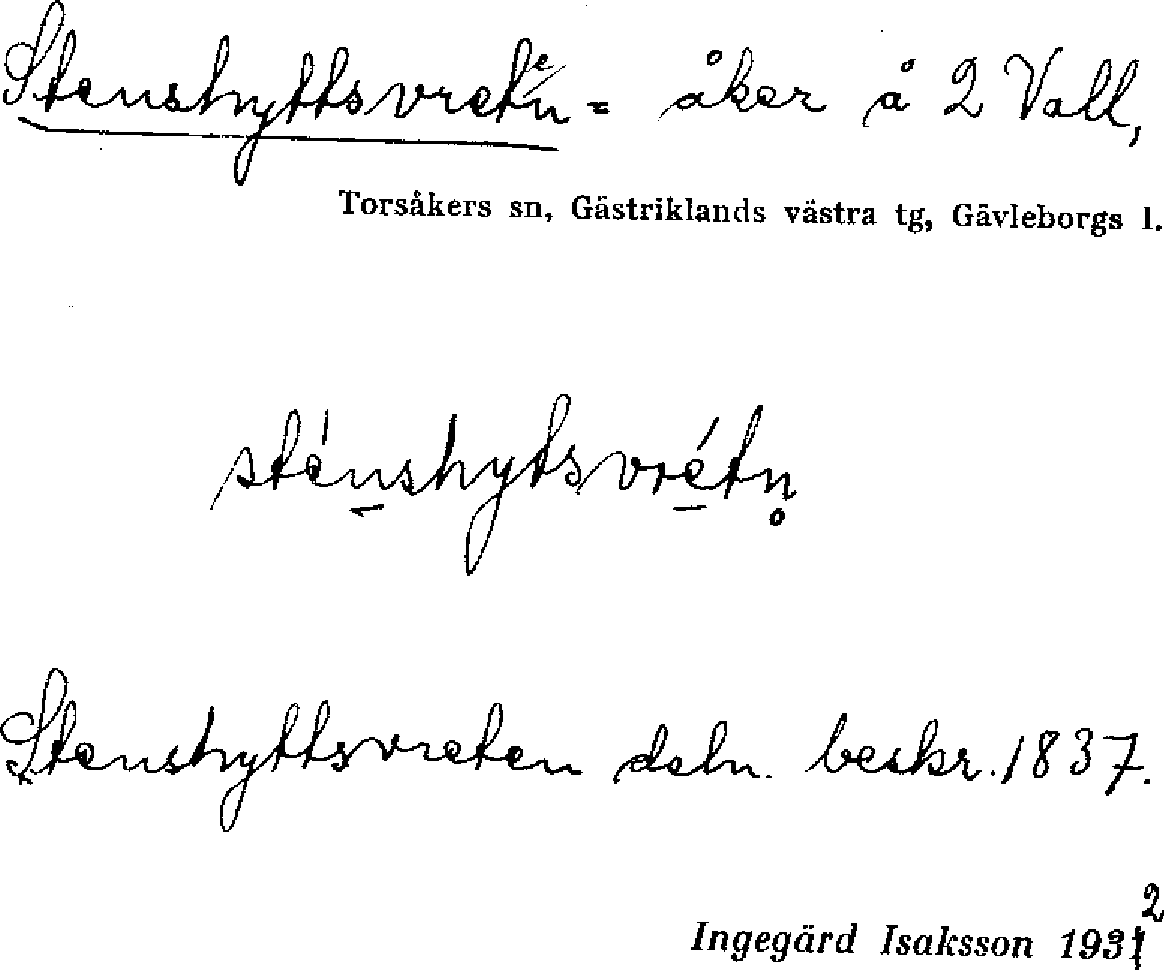 Stenshyttsvreten = åker å 2 Vall,
Torsåkers sn, Gästriklands västra tg, Gävleborgs l.
sténshytsvrétn̥
Stenshyttsvreten deln. beskr. 1837.
Ingegärd Isaksson 1932